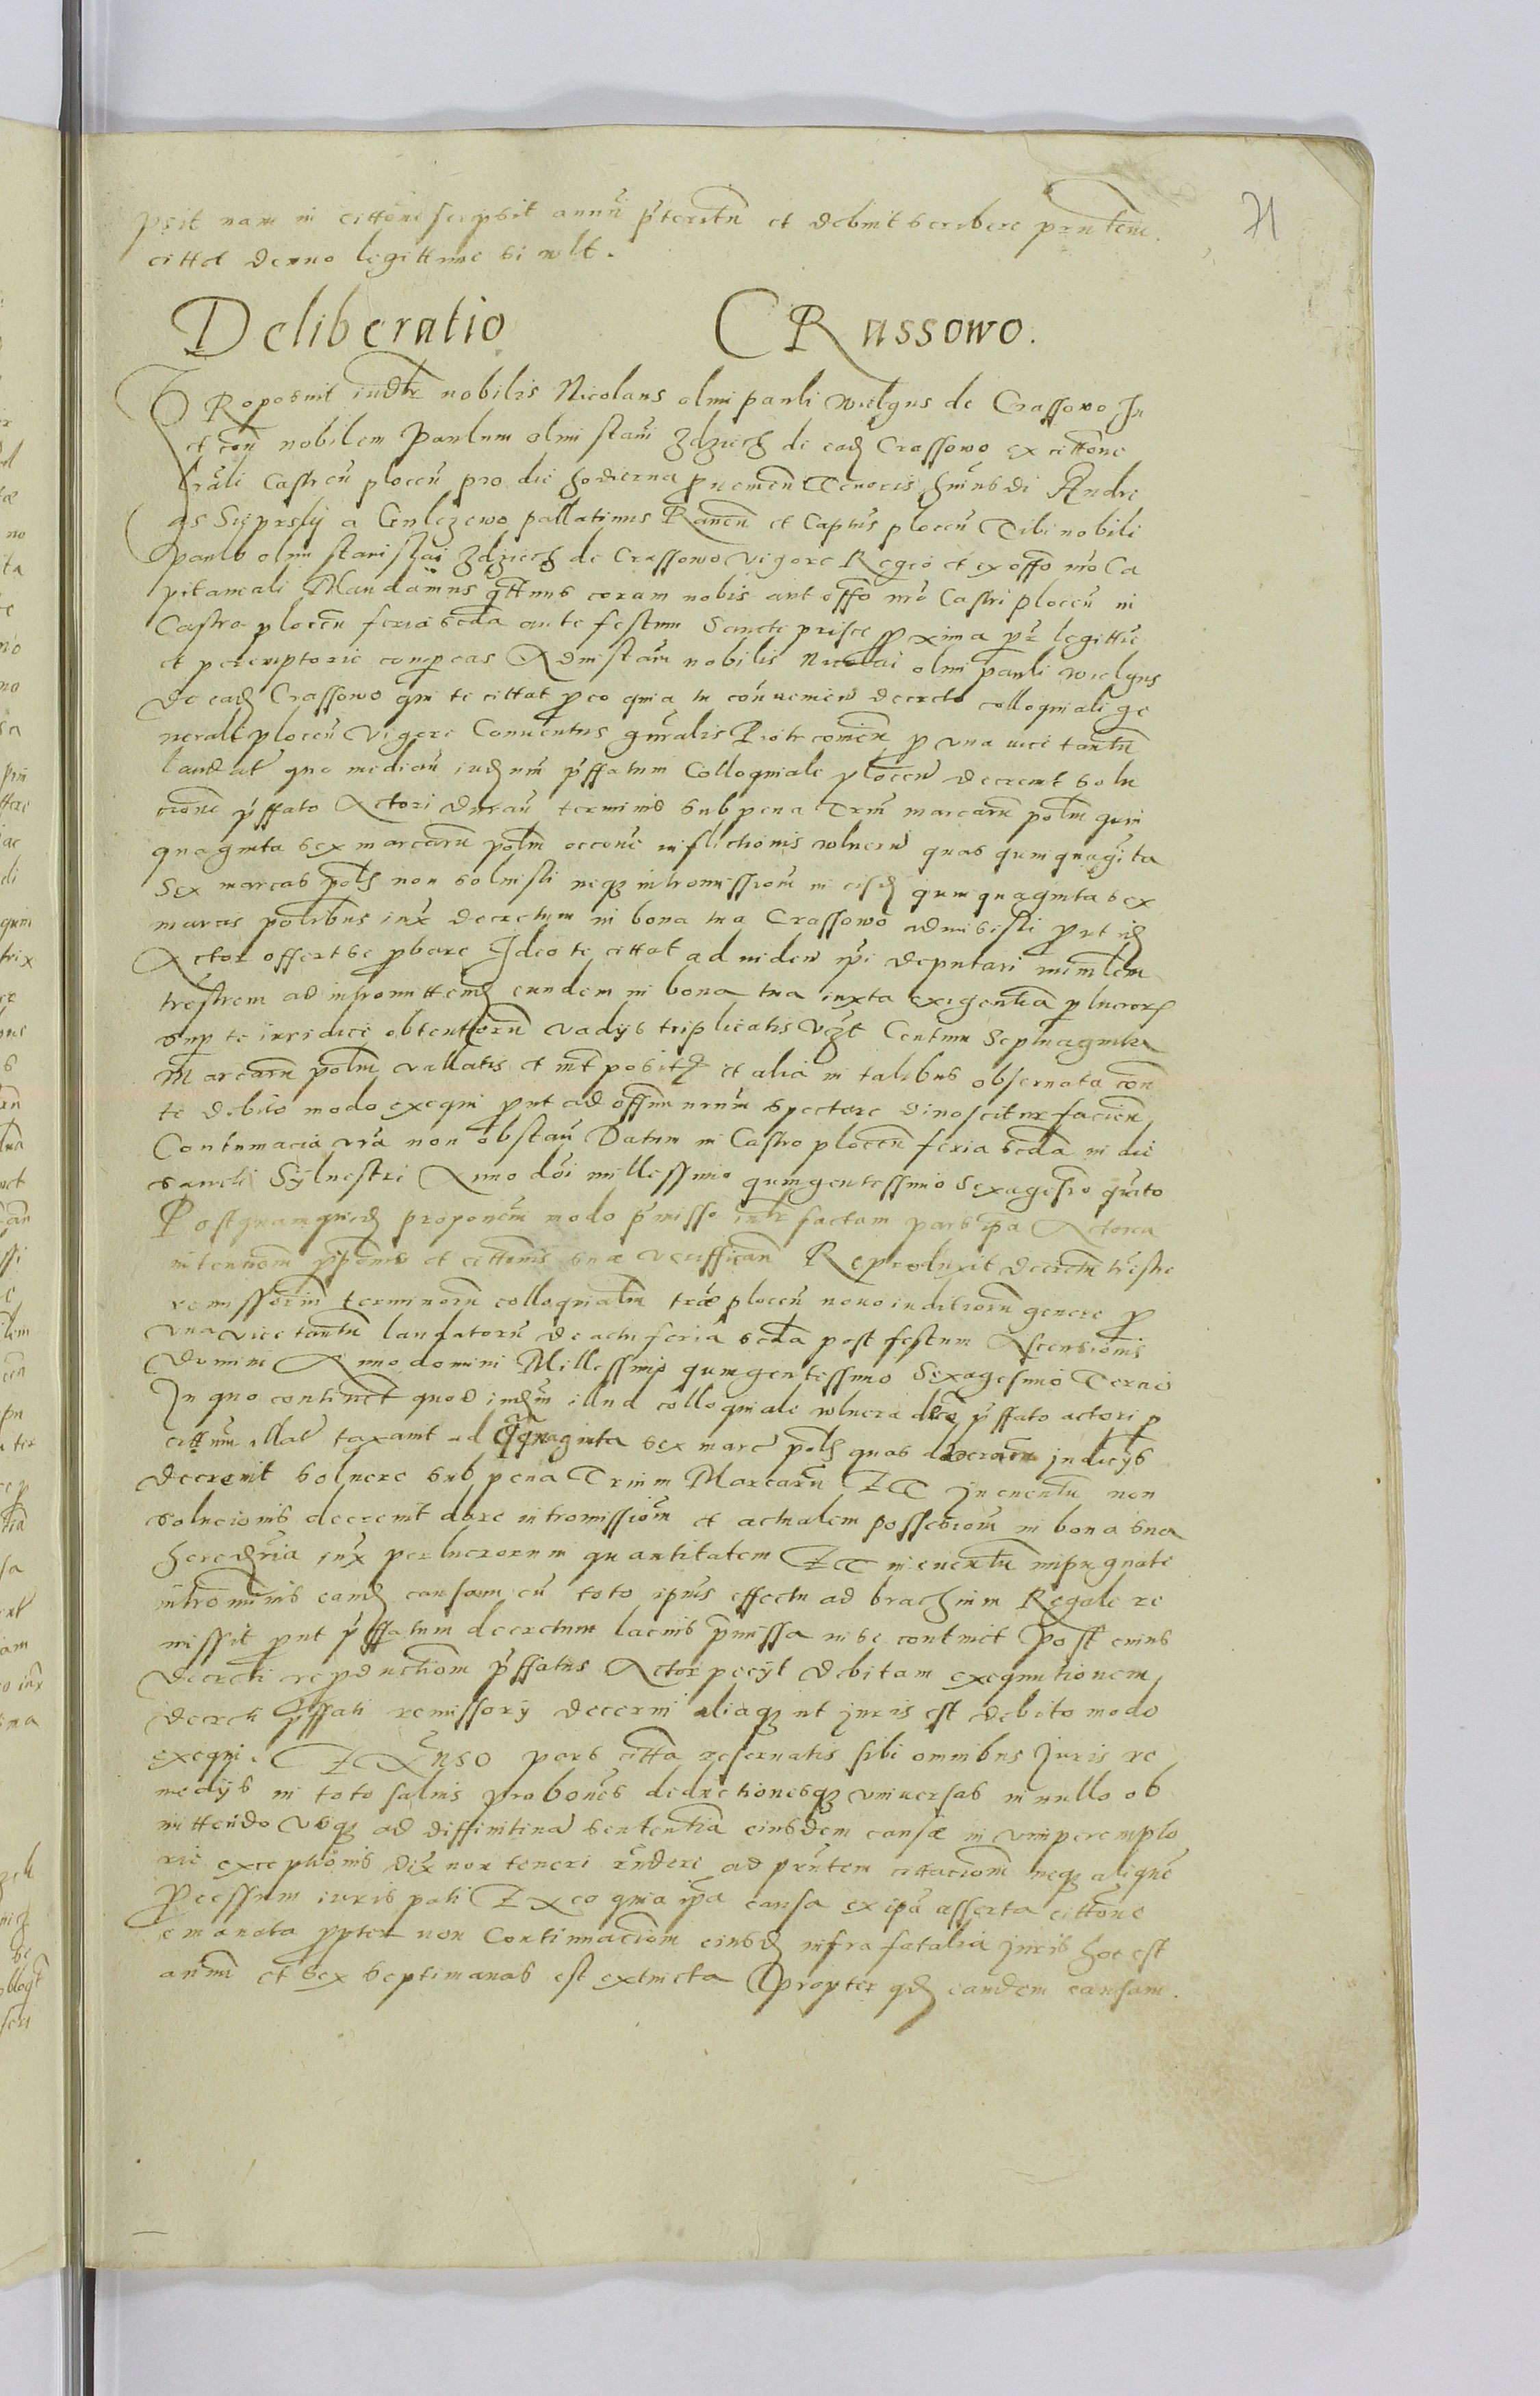 71
psit nam in cittone scripsit annu preteritu et debuit scribere prntem.
cittet denuo legittime si vult.
Deliberatio CRassowo.
PRoposuit iudtr nobilis Nicolaus olim pauli wielgus de Crassowo In
et con nobilem paulum olim stani Zdziech de ead Crassowo ex cittone
lrali Castren plocen pro die hodierna pnemen Tenoris hmusdi Andre
as Sieprsky a Gulczewo pallatinus Raven et Captus plocen Tibi nobili
paulo olim stanislai Zdziech de Crassowo vigore Regio et ex offo nro Ca
pitaneali Mandamus qttnus coram nobis aut offo nro Castri plocen in
Castro plocen feria scda ante festum Sancte prisce proxima pr legittie
et peremptorie compeas Ad instam nobilis Nicolai olim pauli wielgus
de ead Crassowo qui te cittat p eo quia tu conveniens decreto colloquiali ge
nerali plocen vigore Conventus gnralis Piotrcovien p vna vice tantu
laudat quo median iudm pffatum Colloquiale plocen decrevit solu
cione pffato Actori terminis sub pena Triu marcaru polm quin
quaginta sex marcaru polm occone inflictionis vulneru quas quinquaginta
Sex marcas pols non solvisti neq intromissiom in eisd quinquaginta sex
marcas polibus iux decretum in bona tua Crassowo admisisti prt id
Actor offert se pbare Ideo te cittat ad viden ipi deputari minlem
trestrem ad intromittemd eundem in bona tua iuxta exigentia plucror
sup te iuridice obtentoru vadys triplicatis vzt Centum Septuagnta
Marcaru polm vallatis et int posit et alia in talibus observata con
te debito modo exequi prut ad offm nrum spectare dinoscitur facien
Contumacia vra non obstan Datum in Castro plocen feria scda in die
sancti Sylvestri Anno doi millessimo quingentessimo Sexagesimo quarto
Postquam quid proponem modo pmisso intr factam pars ipa Actorea
intentiom pponis et cittonis sue verifficam Reproduxit decretu trestre
remissorium terminoru colloquialiu tre plocen novo inditioru genere p
vna vice tantu laudatoru de actu feria scda post festum Ascensionis
Domini Anno domini Millessimo quingentessimo Sexagesimo Tercio
In quo continet quod iudm illud colloquiale vulnera dco pffato actori p
cittum illat taxavit ad Qquaginta sex marc pols quas indicys
decrevit solvere sub pena Trium Marcaru Et in eventu non
solucionis decrevit dare intromissiom et actualem possessiom in bona sua
heredria iux perlucrorum quantitatem Et in eventu impugnate
intromnis eand causam cu toto ipius effectu ad brachium Regale re
missit prut pffatum decretum lacius pmissa in se continet Post cuius
decreti repductiom pffatus Actor pecyt debitam exequutionem
decreti pffati remissory decerni aliaq ut juris est debito modo
exequi. Et Verso pars citta reservatis sibi omnibus Juris re
medys in toto salvis probones deductionesq universas in nullo ob
mittendo vsq ad diffinitiva sententia eiusdem cause in vim peremplo
rie exceptionis dix non teneri rndere ad prntem cittaciom neq alique
Pcessum iuris pati Ex eo quia ipa causa ex ipa asserta cittone
emanata ppter non Continuaciom eiusd infra fatalia juris hoc est
annu et sex septimanas est extincta propter qd eandem causam.